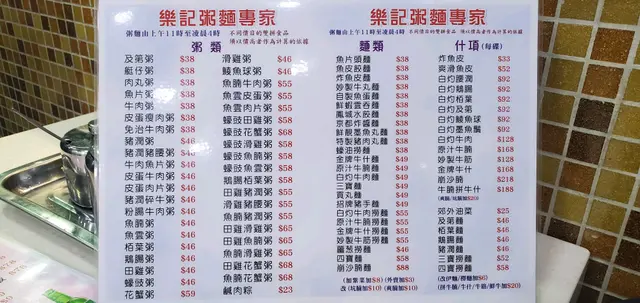 樂記粥麵專家
粥麵由上午11時至凌晨4時
不同價目的雙拼食品
須以價高者作為計算的依據
粥類
及第粥 $38
艇仔粥 $38
肉丸粥 $38
魚片粥 $38
牛肉粥 $38
皮蛋瘦肉粥 $38
免治牛肉粥 $38
豬潤粥 $46
豬潤豬腰粥 $46
牛肉魚片粥 $46
皮蛋牛肉粥 $46
皮蛋肉片粥 $46
豬潤碎牛粥 $46
粉腸牛肉粥 $46
魚腩粥 $46
魚雲粥 $46
栢葉粥 $46
鵝腸粥 $46
田雞粥 $46
蠔豉粥 $46
花蟹粥 $59
滑雞粥 $46
鯪魚球粥 $46
魚腩牛肉粥 $55
魚雲皮蛋粥 $55
魚雲肉片粥 $55
蠔豉田雞粥 $58
蠔豉花蟹粥 $68
蠔豉滑雞粥 $58
蠔豉魚腩粥 $58
鵝腸栢葉粥 $58
田雞豬潤粥 $55
滑雞豬腰粥 $55
魚腩豬潤粥 $55
田雞魚腩粥 $55
田雞滑雞粥 $55
田雞花蟹粥 $68
魚腩花蟹粥 $68
鹹肉粽 $23
樂記粥麵專家
粥麵由上午11時至凌晨4時
不同價目的雙拼食品
須以價高者作為計算的依據
麵類
魚片頭麵 $38
魚皮餃麵 $38
炸魚皮麵 $38
炒製牛丸麵 $38
自製魚蛋麵 $38
鮮蝦雲吞麵 $38
鳳城水餃麵 $38
京都炸醬麵 $38
鮮靚墨魚丸麵 $38
特製豬肉丸麵 $38
蠔油撈麵 $38
金牌牛什麵 $49
原汁牛腩麵 $49
白灼牛肉麵 $49
三寶麵 $49
貢丸麵 $49
招牌豬手麵 $49
白灼牛肉撈麵 $55
原汁牛腩撈麵 $55
金牌牛什撈麵 $55
炒製牛筋撈麵 $55
薑葱撈麵 $46
四寶麵 $58
崩沙腩麵 $88
(加紫菜加$8) (外賣加$3)
改 (坑腩加$10) (爽腩加$10)
什項 (每碟)
炸魚皮 $33
爽滑魚皮 $52
白灼腰潤 $92
白灼鵝腸 $92
白灼栢葉 $92
白灼及第 $92
白灼鯪魚球 $92
白灼墨魚鬚 $92
白灼牛肉 $128
原汁牛腩 $168
炒製牛筋 $128
金牌牛什 $168
崩沙腩 $218
牛腩拼牛什 $188
(爽腩/坑腩加$20)
郊外油菜 $25
及第麵 $46
栢葉麵 $46
鵝腸麵 $46
豬潤麵 $46
三寶撈麵 $52
四寶撈麵 $58
(改伊麵/撈麵加$6)
(拼牛腩/牛什/牛筋/鮮牛加$20)